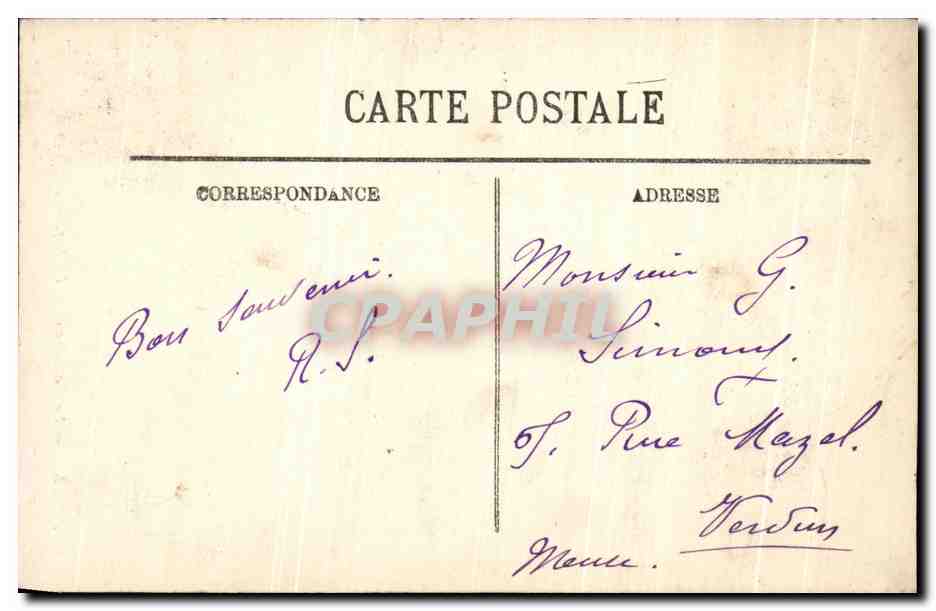 CARTE POSTALE
CORRESPONDANCE
ADRESSE
Bon souvenir.
R. S.
Monsieur G.
Simony.
5, Rue Mazel.
Verdun
Meuse.
CPAPHIL